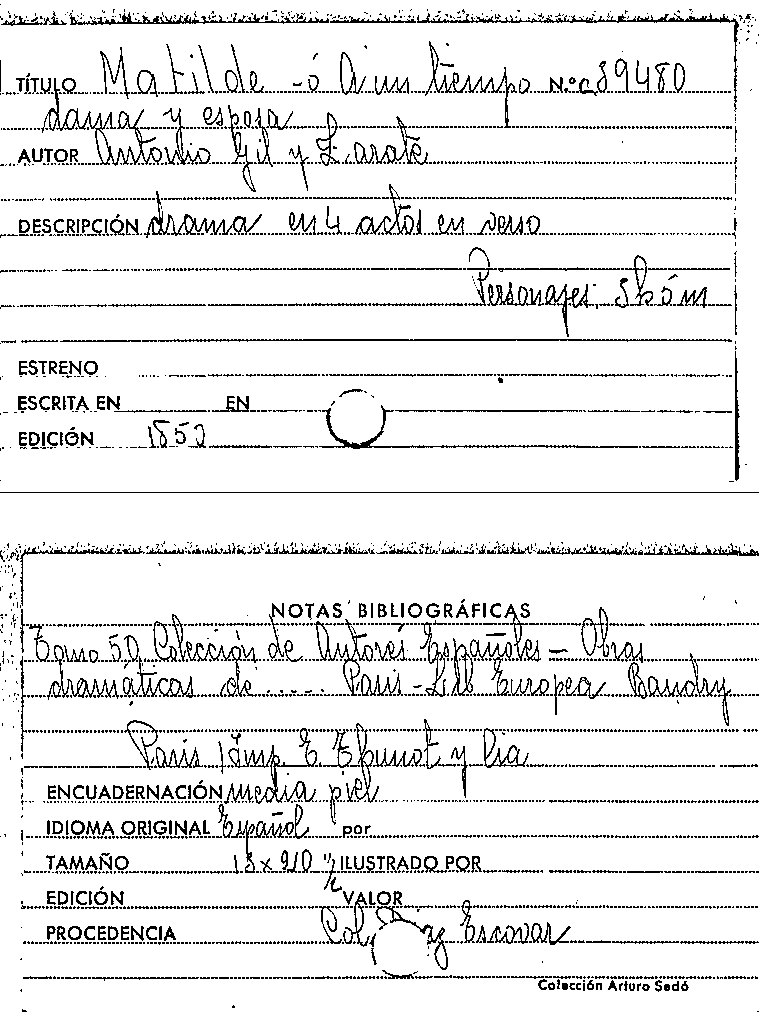 TÍTULO Matilde -ó A un tiempo N.º 89480
dama y esposa
AUTOR Antonio Gil y Zarate
DESCRIPCIÓN drama en 4 actos en verso
Personajes:
ESTRENO
ESCRITA EN EN
EDICIÓN 1850
NOTAS BIBLIOGRÁFICAS
Tomo 50 Colección de Autores Españoles - Obras
dramáticas de ..... Paris - Lib Europea Baudry
Paris / Imp. E. y Cia
ENCUADERNACIÓN media piel
IDIOMA ORIGINAL Español por
TAMAÑO ILUSTRADO POR
EDICIÓN VALOR
PROCEDENCIA Col. Escovar
Colección Arturo Sedó